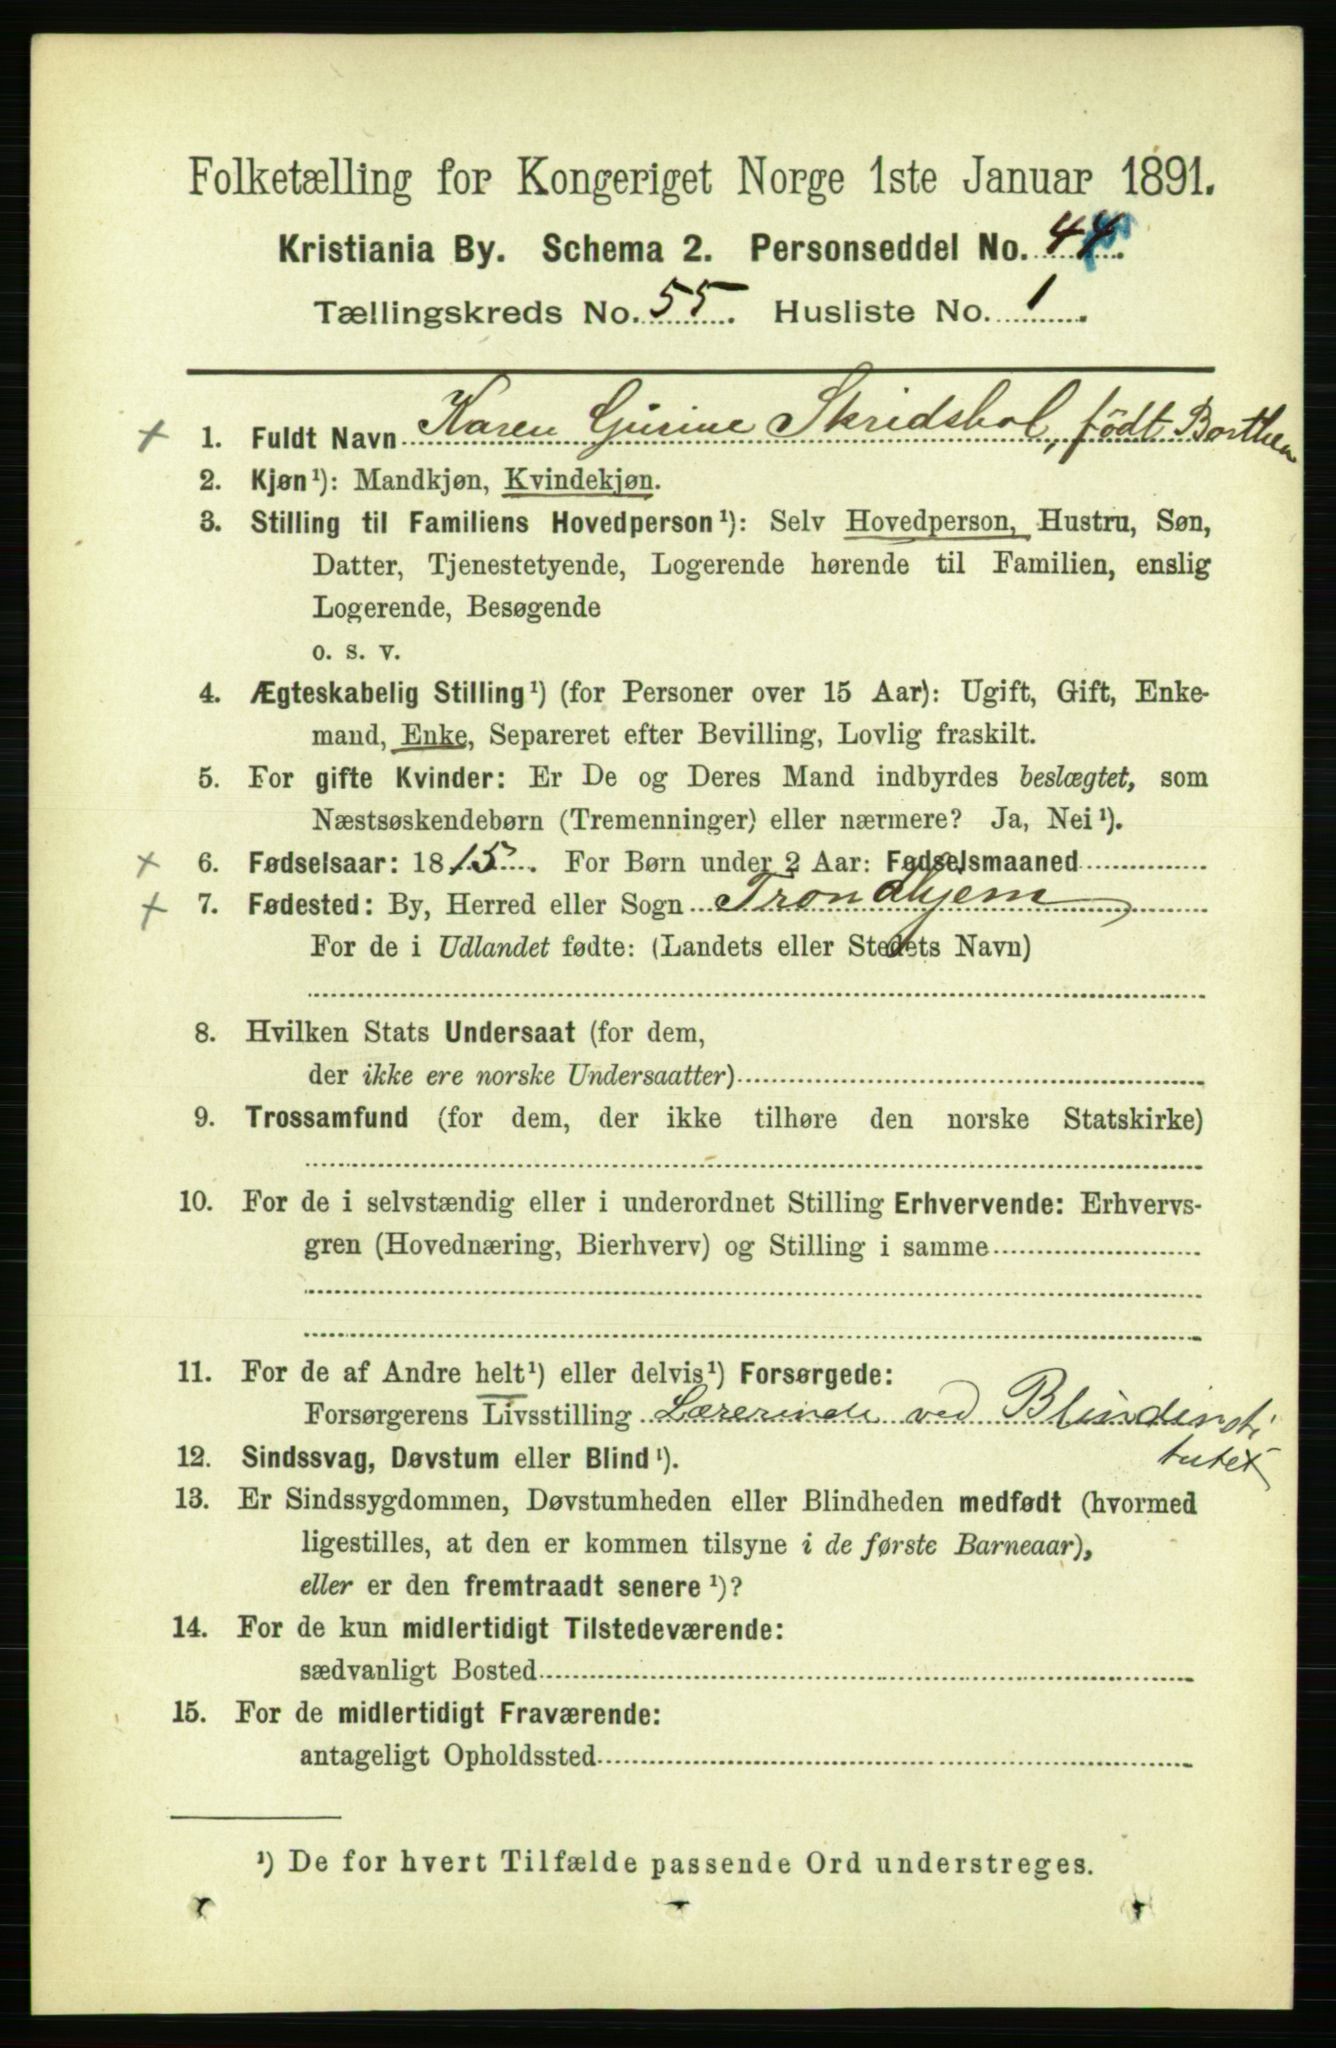 Folketælling for Kongeriget Norge 1ste Januar 1891.
Kristiania By. Schema 2. Personseddel No. 44.
Tællingskreds No. 55. Husliste No. 1.
1. Fuldt Navn Karen Gurine Skridshol, født Borthen
2. Kjøn¹): Mandkjøn, Kvindekjøn.
3. Stilling til Familiens Hovedperson¹): Selv Hovedperson, Hustru, Søn,
Datter, Tjenestetyende, Logerende hørende til Familien, enslig
Logerende, Besøgende
o. s. v.
4. Ægteskabelig Stilling¹) (for Personer over 15 Aar): Ugift, Gift, Enke-
mand, Enke, Separeret efter Bevilling, Lovlig fraskilt.
5. For gifte Kvinder: Er De og Deres Mand indbyrdes beslægtet, som
Næstsøskendebørn (Tremenninger) eller nærmere? Ja, Nei¹).
6. Fødselsaar: 1815. For Børn under 2 Aar: Fødselsmaaned
7. Fødested: By, Herred eller Sogn Trondhjem
For de i Udlandet fødte: (Landets eller Stedets Navn)
8. Hvilken Stats Undersaat (for dem,
der ikke ere norske Undersaatter)
9. Trossamfund (for dem, der ikke tilhøre den norske Statskirke)
10. For de i selvstændig eller i underordnet Stilling Erhvervende: Erhvervs-
gren (Hovednæring, Bierhverv) og Stilling i samme
11. For de af Andre helt¹) eller delvis¹) Forsørgede:
Forsørgerens Livsstilling Lærerinde ved Blindensti
tutet
12. Sindssvag, Døvstum eller Blind¹).
13. Er Sindssygdommen, Døvstumheden eller Blindheden medfødt (hvormed
ligestilles, at den er kommen tilsyne i de første Barneaar),
eller er den fremtraadt senere¹)?
14. For de kun midlertidigt Tilstedeværende:
sædvanligt Bosted
15. For de midlertidigt Fraværende:
antageligt Opholdssted
¹) De for hvert Tilfælde passende Ord understreges.